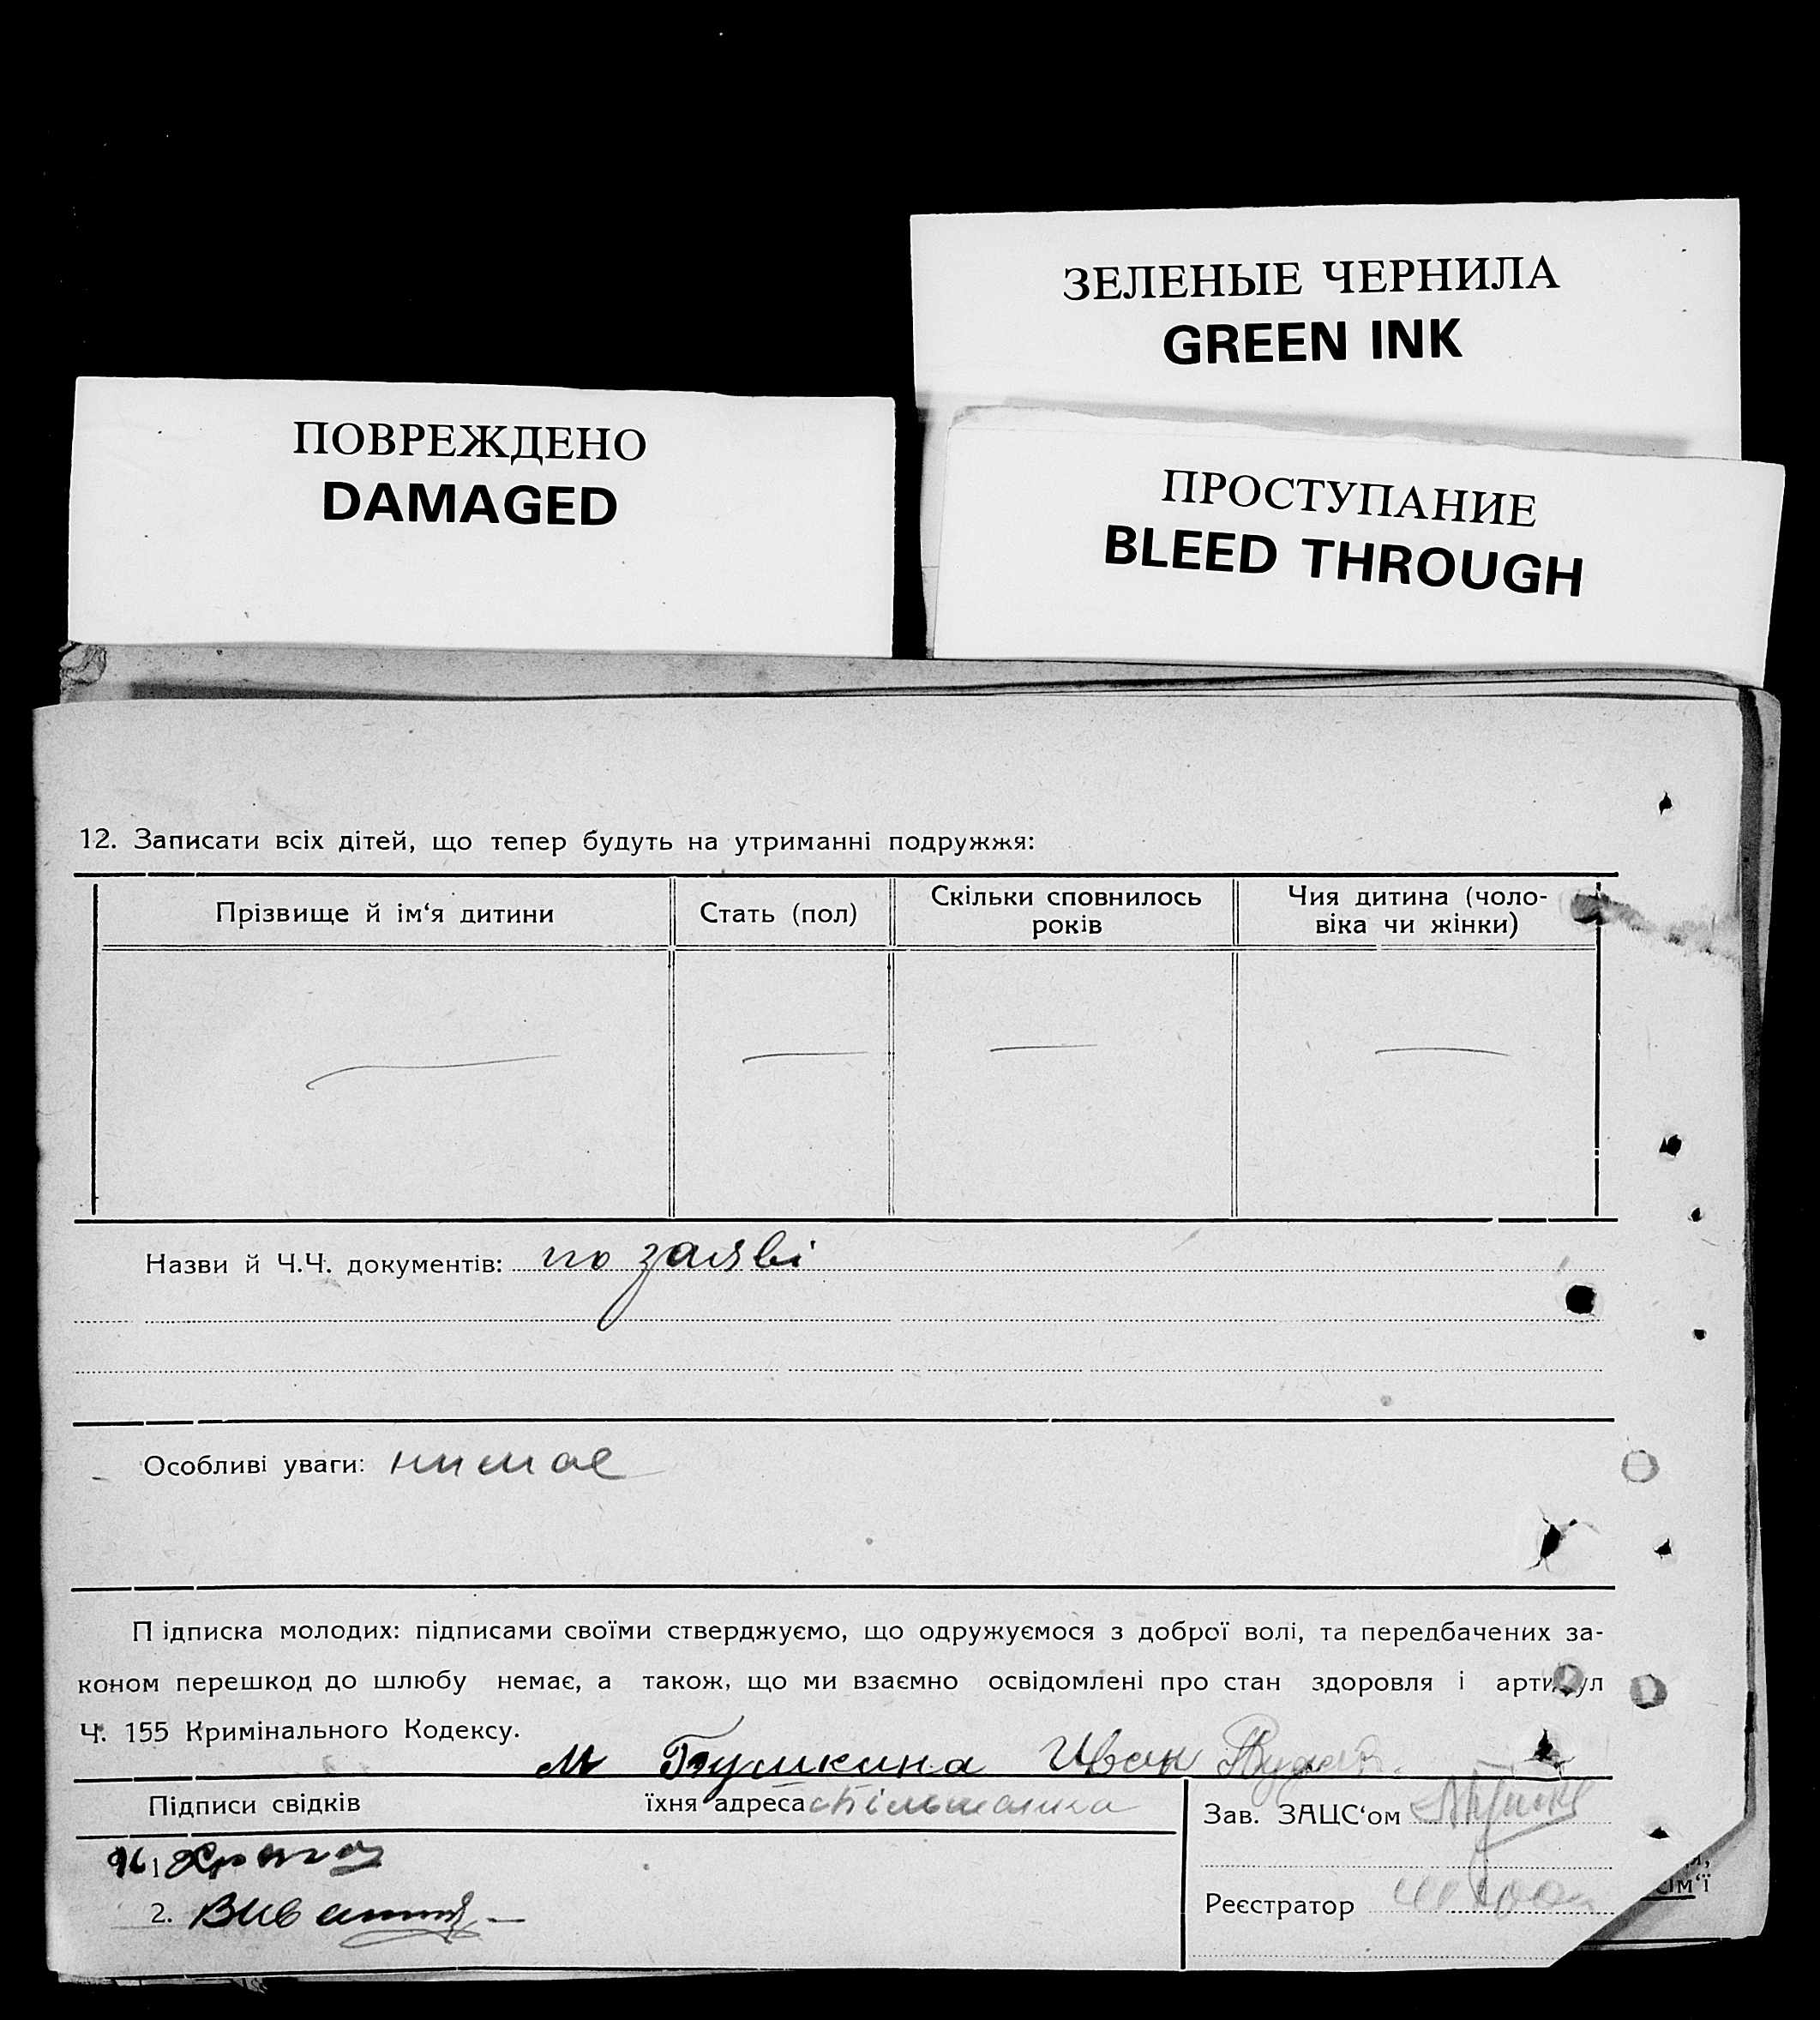 ЗЕЛЕНЫЕ ЧЕРНИЛА
GREEN INK
ПОВРЕЖДЕНО
DAMAGED
ПРОСТУПАНИЕ
BLEED THROUGH
12. Записати всіх дітей, що тепер будуть на утриманні подружжя:
Прізвище й ім‘я дитини
Стать (пол)
Скільки сповнилось
років
Чия дитина (чоло-
віка чи жінки)
Назви й Ч.Ч. документів: по заяві
Особливі уваги: нимае
Підписка молодих: підписами своїми стверджуємо, що одружуємося з доброї волі, та передбачених за-
коном перешкод до шлюбу немає, а також, що ми взаємно освідомлені про стан здоровля і артикул
Ч. 155 Кримінального Кодексу.
Иван
Підписи свідків
їхня адреса
Зав. ЗАЦС‘ом
1
2.
Реєстратор
сім‘ї